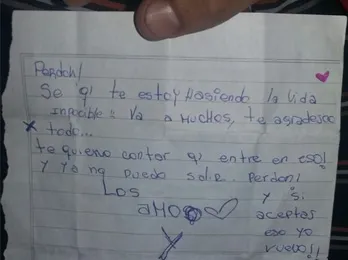 Perdon!
Se q' te estoy Hasiendo la vida
inpocible: Va a Muchos, te agradesco
x todo...
te quiero contar q' entre en eso!
y ya no puedo salir. Perdon!
Los amo
y si
aceptas
eso yo
vuelvo!!
y